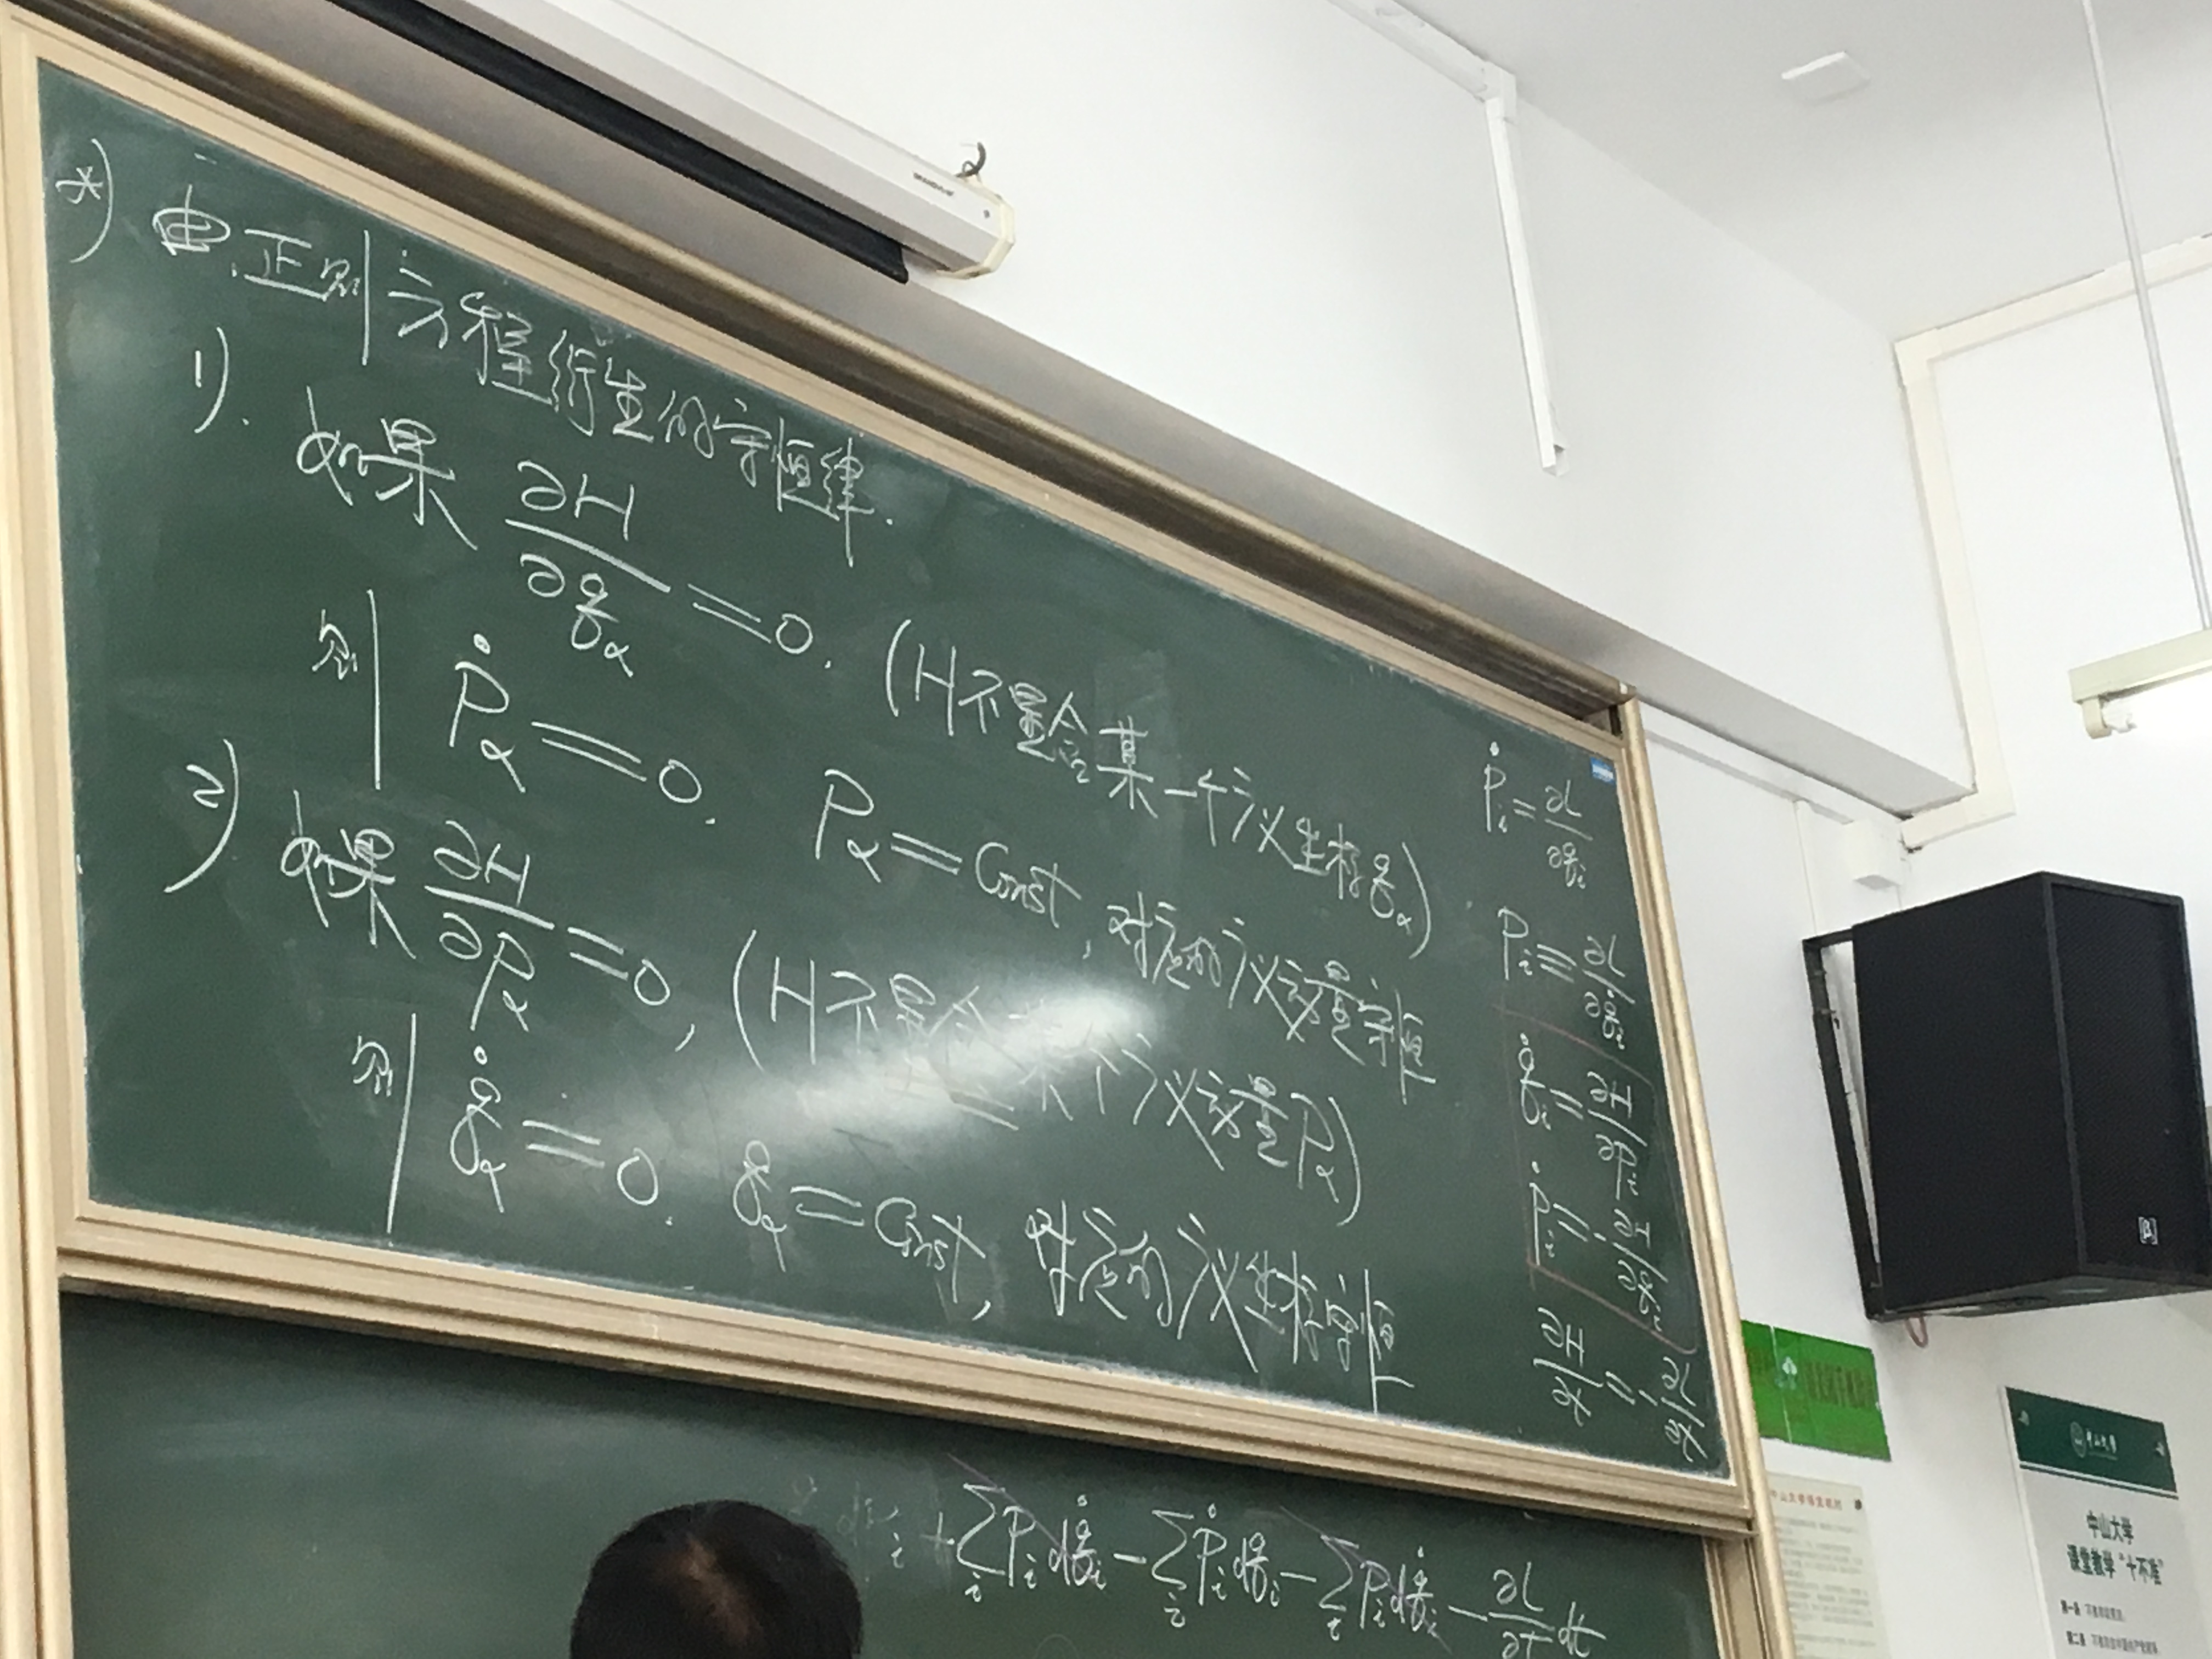 *) 由正则方程衍生的守恒律.
1). 如果 ∂H/∂qα = 0. (H不显含某一个广义坐标qα)
则 ṗα = 0. Pα = Const, 对应的广义动量守恒
2) 如果 ∂H/∂Pα = 0, (H不显含某个广义动量Pα)
则 q̇α = 0. qα = Const, 对应的广义坐标守恒
Ṗi = ∂L/∂qi
Pi ≡ ∂L/∂q̇i
q̇i = ∂H/∂Pi
Ṗi = -∂H/∂qi
∂H/∂t = -∂L/∂t
+ ∑i Pi dq̇i - ∑i Ṗi dqi - ∑i Pi dq̇i - ∂L/∂t dt
中山大学
中山大学
课堂教学“十不准”
第一条
第二条